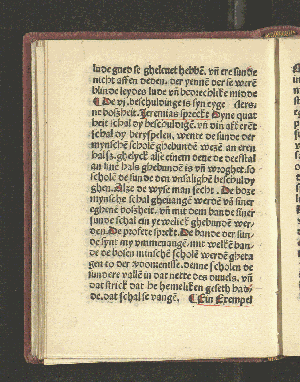 lude gned se ghelouet hebbē. vñ ere sunde
nicht affen deden. der yennē der se werē
blinde leydes lude vñ bedrechlick midde
¶ De vj. beschuldinge is syn eyge ders,
ne boßheit. Jeremias sprekt Dyne quat
heit schal dy beschuldigē. vñ din afkerēt
schal dy beryspelen. wente de sunde der
mynschē scholē ghebundē wesen an eren
halß. ghelyck alse einem dene de deefstal
an sine hals ghebunde is vñ wroghet. so
scholē de sunde den vnsalighē beschuldy
ghen. Alze de wyse man secht. De boze
mynsche schal gheuangē werdē vā siner
eghene boßheit. vñ mit dem bande siner
sunde schal eyn yewelick ghebundē wer,
den. De profete sprekt. De bande der sun,
de synt my vmmeuangē mit welkē ban,
de de bosen minschē scholē werdē gheto
gen to der vdomenisse. denne scholen de
sundere vallē in dat nette des duuels. vñ
dat strick dat he hemeliken gesett had,
de. dat schal se vangē. ¶ Ein Exempel